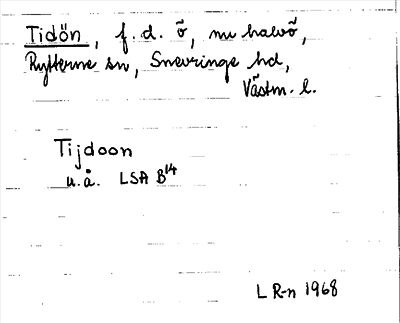 Tidön, f.d. ö, nu halvö,
Rytterne sn, Snevringe hd,
Västm. l.
Tijdoon
u.å. LSA B14
L R-n 1968